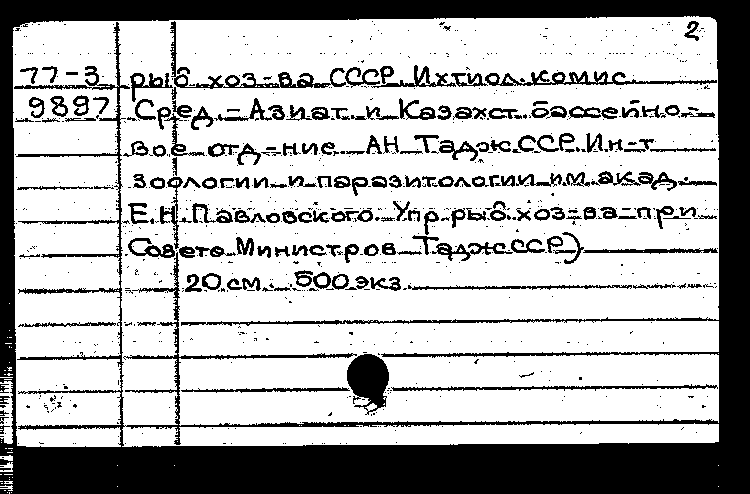 2
77-3 рыб хоз-ва СССР. Ихтиол. комис.
9897 Сред.-Азиат. и Казахст. бассейно-
вое отд-ние АН ТаджССР. Ин-т
зоологии и паразитологии им. акад.
Е.Н. Павловского. Упр. рыб. хоз-ва при
Совете Министров ТаджССР)
20 см. 500 экз.